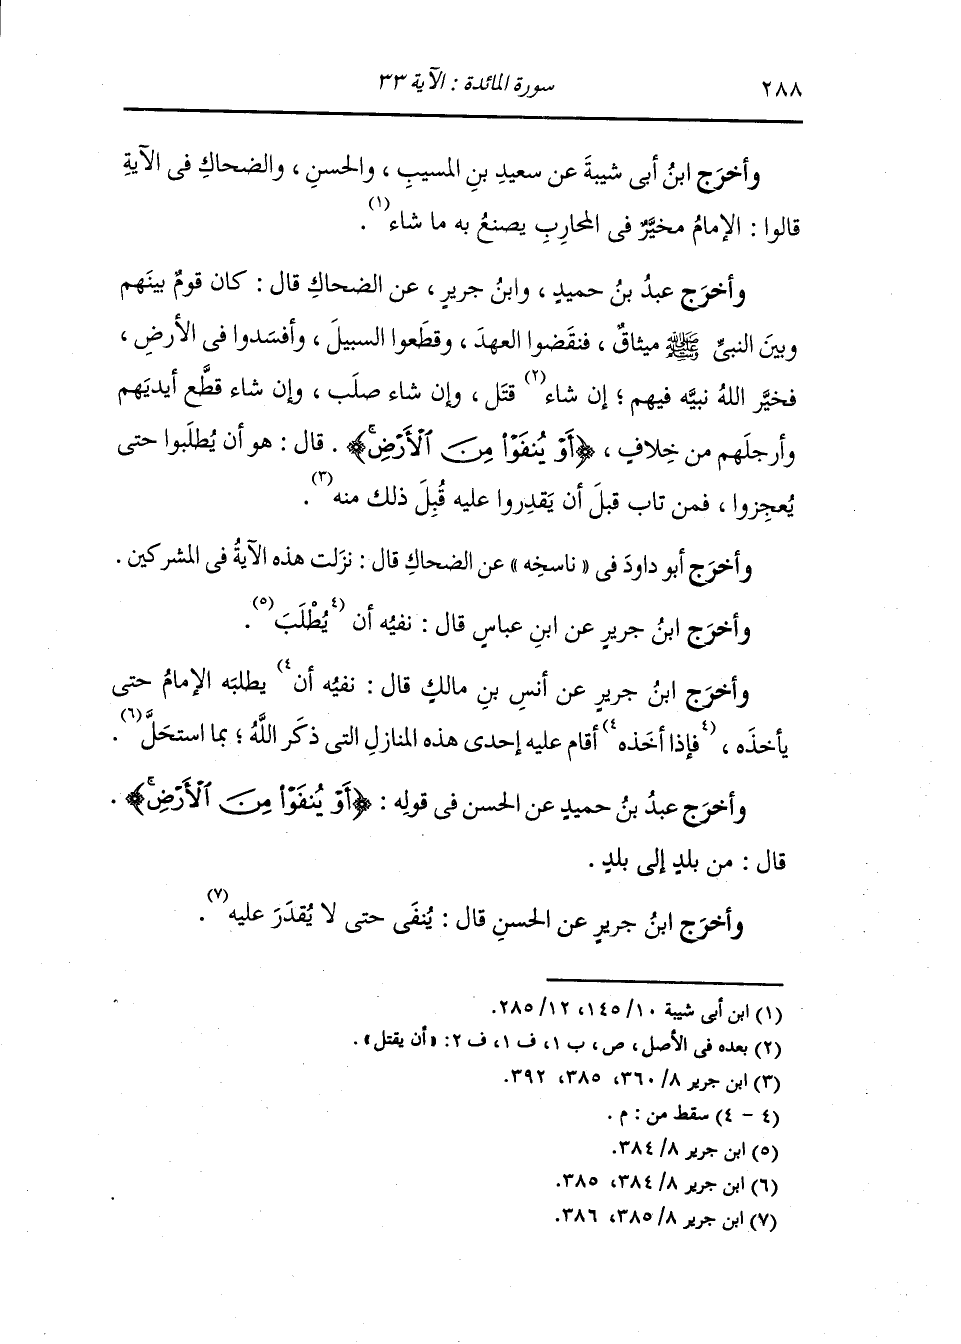 ٢٨٨
سورة المائدة : الآية ٣٣
وأخرَج ابنُ أبى شيبةَ عن سعيدِ بنِ المسيبِ ، والحسنِ ، والضحاكِ فى الآيةِ
قالوا : الإمامُ مخيَّرٌ فى المحاربِ يصنعُ به ما شاء(١) .
وأخرَج عبدُ بنُ حميدٍ ، وابنُ جريرٍ ، عن الضحاكِ قال : كان قومٌ بينَهم
وبينَ النبىِّ ﷺ ميثاقٌ ، فنقَضوا العهدَ ، وقطَعوا السبيلَ ، وأفسَدوا فى الأرضِ ،
فخيَّر اللهُ نبيَّه فيهم ؛ إن شاء(٢) قتَل ، وإن شاء صلَب ، وإن شاء قطَّع أيديَهم
وأرجلَهم من خِلافٍ ، ﴿أَوۡ يُنفَوۡاْ مِنَ ٱلۡأَرۡضِۚ﴾ . قال : هو أن يُطلَبوا حتى
يُعجِزوا ، فمن تاب قبلَ أن يَقدِروا عليه قُبِلَ ذلك منه(٣) .
وأخرَج أبو داودَ فى « ناسخِه » عن الضحاكِ قال : نزَلت هذه الآيةُ فى المشركين .
وأخرَج ابنُ جريرٍ عن ابنِ عباسٍ قال : نفيُه أن (٤ يُطْلَبَ(٥) .
وأخرَج ابنُ جريرٍ عن أنسِ بنِ مالكٍ قال : نفيُه أن ٤) يطلبَه الإمامُ حتى
يأخذَه ، (٤ فإذا أخَذه ٤) أقام عليه إحدى هذه المنازلِ التى ذكَر اللَّهُ ؛ بما استحَلَّ(٦) .
وأخرَج عبدُ بنُ حميدٍ عن الحسن فى قولِه : ﴿أَوۡ يُنفَوۡاْ مِنَ ٱلۡأَرۡضِۚ﴾ .
قال : من بلدٍ إلى بلدٍ .
وأخرَج ابنُ جريرٍ عن الحسنِ قال : يُنفَى حتى لا يُقدَرَ عليه(٧) .
(١) ابن أبى شيبة ١٠/ ١٤٥، ١٢/ ٢٨٥.
(٢) بعده فى الأصل ، ص ، ب ١، ف ١، ف ٢: «أن يقتل» .
(٣) ابن جرير ٨/ ٣٦٠، ٣٨٥، ٣٩٢.
(٤ - ٤) سقط من : م .
(٥) ابن جرير ٨/ ٣٨٤.
(٦) ابن جرير ٨/ ٣٨٤، ٣٨٥.
(٧) ابن جرير ٨/ ٣٨٥، ٣٨٦.